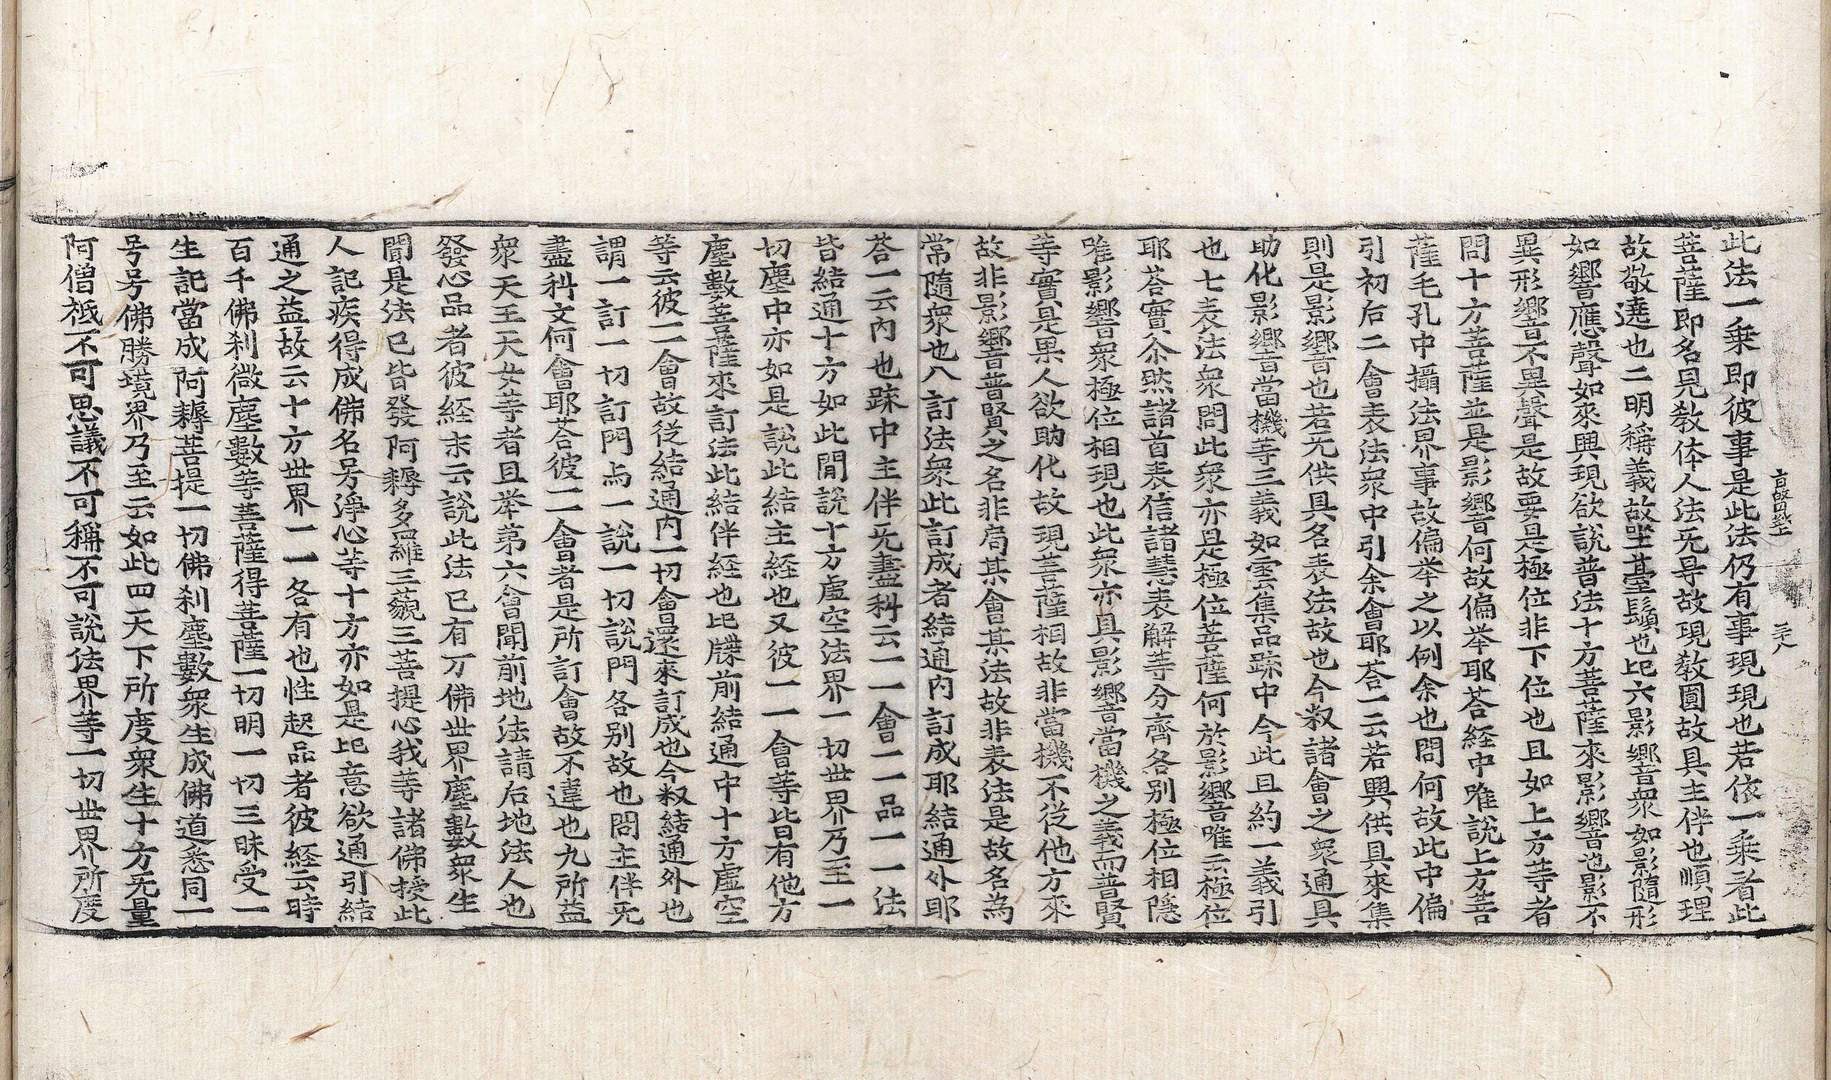 此法一乘即彼事是此法仍有事現現也若依一乘者此
菩薩即名見教体人法旡导故現教圓故具主伴也順理
故敬遶也二明稱義故坐䑓鬚也比六影響衆如影隨形
如響應聲如來興現欲說普法十方菩薩來影響也影不
異形響不異聲是故要是極位非下位也且如上方等者
問十方菩薩並是影響何故偏举耶荅経中唯說上方菩
薩毛孔中攝法界事故偏举之以例余也問何故此中偏
引初后二會表法衆中引余會耶荅一云若興供具來集
則是影響也若无供具名表法故也今叙諸會之衆通具
助化影響當機等三義如雲集品疏中今此且約一義引
也七表法衆問此衆亦是極位菩薩何於影響唯云極位
耶荅實尒然諸首表信諸慧表解等分齊各別極位相隱
唯影響衆極位相現也此衆亦具影響當機之義而普賢
等實是果人欲助化故現菩薩相故非當機不從他方來
故非影響普賢之名非局某會某法故非表法是故名為
常隨衆也八訂法衆此訂成者結通内訂成耶結通外耶
荅一云內也疎中主伴旡盡科云一一會一一品一一法
皆結通十方如此閒說十方虛空法界一切世界乃至一
切塵中亦如是說此結主経也又彼一一會等皆有他方
塵數菩薩來訂法此結伴経也比牒前結通中十方虛空
等云彼一一會故従結通内一切會還來訂成也今叙結通外也
謂一訂一切訂門𤇆一說一切說門各別故也問主伴旡
盡科文何會耶荅彼一一會者是所訂會故不違也九所益
衆天王天女等者且举苐六會聞前地法請后地法人也
發心品者彼経末云說此法已有万佛世界塵數衆生
聞是法已皆發阿耨多羅三藐三菩提心我等諸佛授此
人記疾得成佛名号淨心等十方亦如是比意欲通引結
通之益故云十方世界一一各有也性起品者彼経云時
百千佛刹微塵數等菩薩得菩薩一切明一切三昧受一
生記當成阿耨菩提一切佛刹塵數衆生成佛道悉同一
号号佛勝境界乃至云如此四天下所度衆生十方旡量
阿僧祇不可思議不可稱不可說法界等一切世界所度